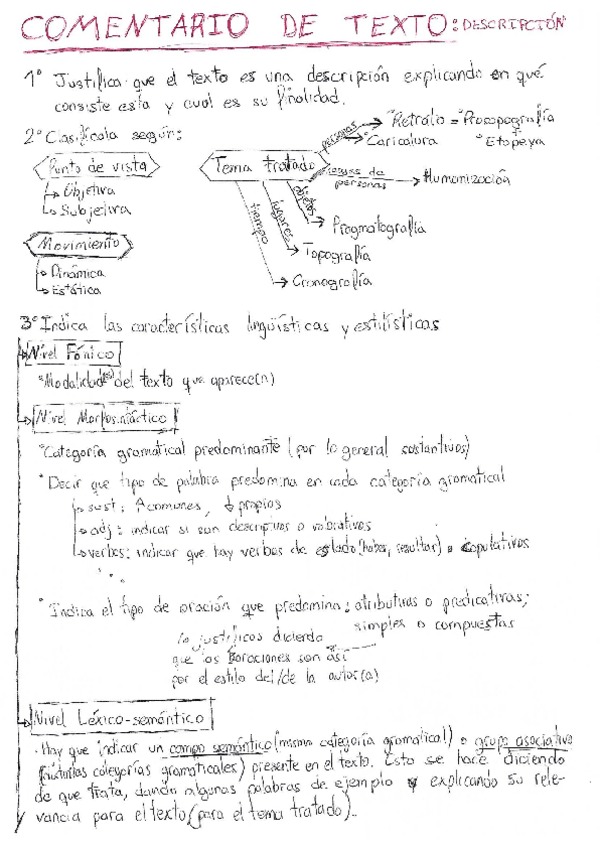 COMENTARIO DE TEXTO: DESCRIPCIÓN
1º Justifica que el texto es una descripción explicando en qué
consiste esta y cual es su finalidad.
2º Clasifícala según:
Punto de vista
Objetiva
Subjetiva
Movimiento
Dinámica
Estática
Tema tratado
personas
Retrato = Prosopografía
Etopeya
Caricatura
rasgos de
personas
Humanización
objetos
Pragmatografía
lugares
Topografía
tiempo
Cronografía
3º Indica las características lingüísticas y estilísticas
Nivel Fónico
Modalidad(es) del texto que aparece(n)
Nivel Morfosintáctico
Categoría gramatical predominante (por lo general sustantivos)
Decir que tipo de palabra predomina en cada categoría gramatical
sust: ↑ comunes, ↓ propios
adj: indicar si son descriptivos o valorativos
verbos: indicar que hay verbos de estado (haber, resultar) o copulativos
...
Indica el tipo de oración que predomina: atributivas o predicativas;
simples o compuestas
lo justificas diciendo
que las oraciones son así
por el estilo del/de la autor(a)
Nivel Léxico-semántico
· Hay que indicar un campo semántico (misma categoría gramatical) o grupo asociativo
categorías gramaticales) presente en el texto. Esto se hace diciendo
de que trata, dando algunas palabras de ejemplo y explicando su rele-
vancia para el texto (para el tema tratado).